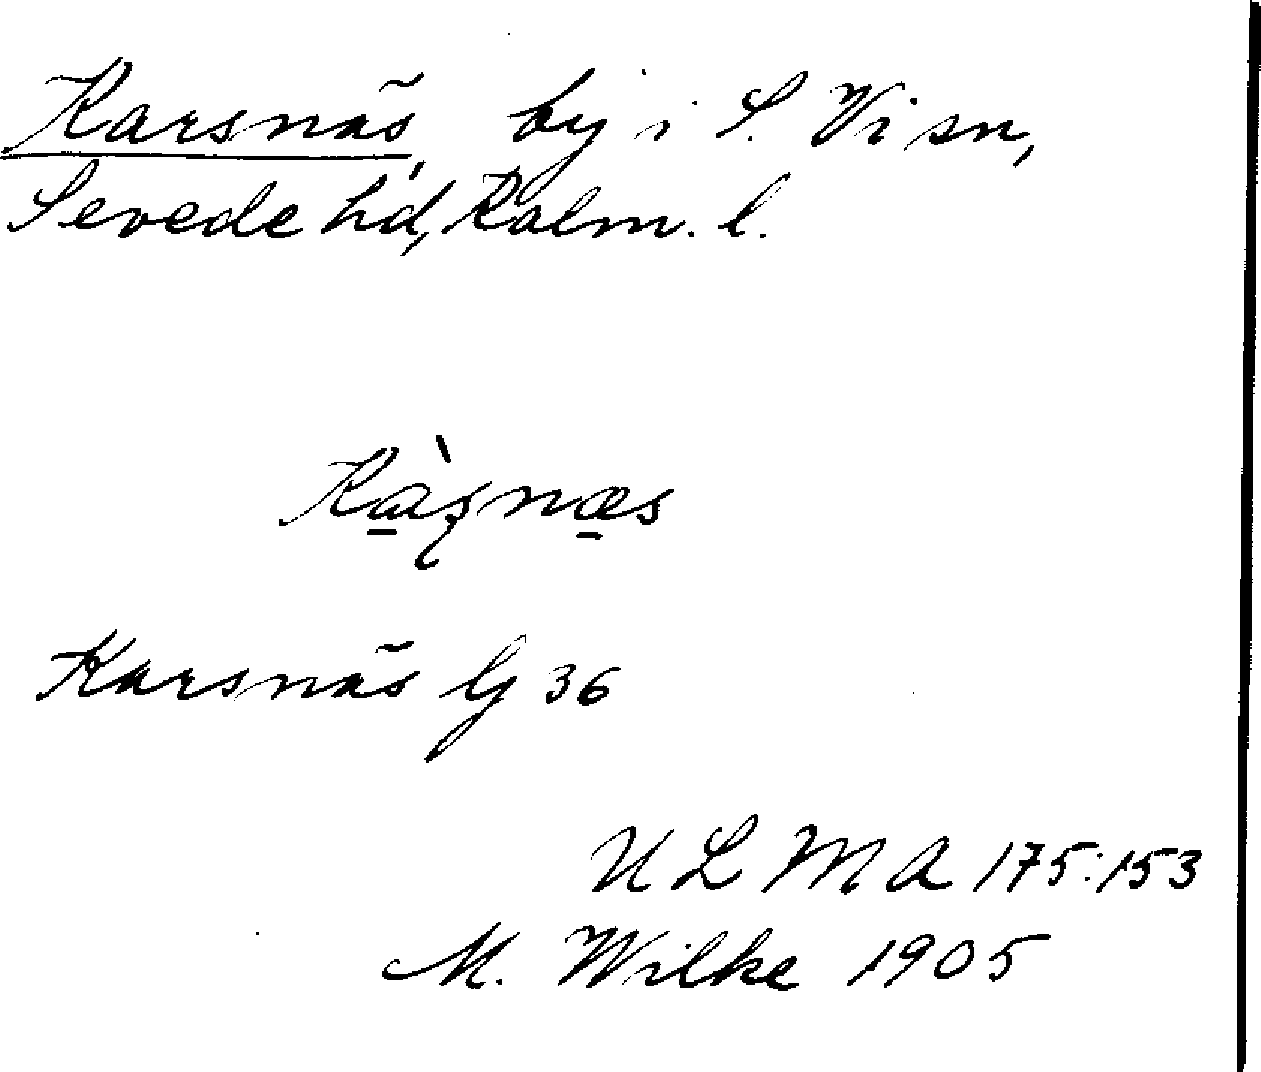 Karsnäs, by i S. Vi sn,
Sevede hd, Kalm. l.
Kàʂnæs
Karsnäs G 36
ULMA 175:153
M. Wilke 1905